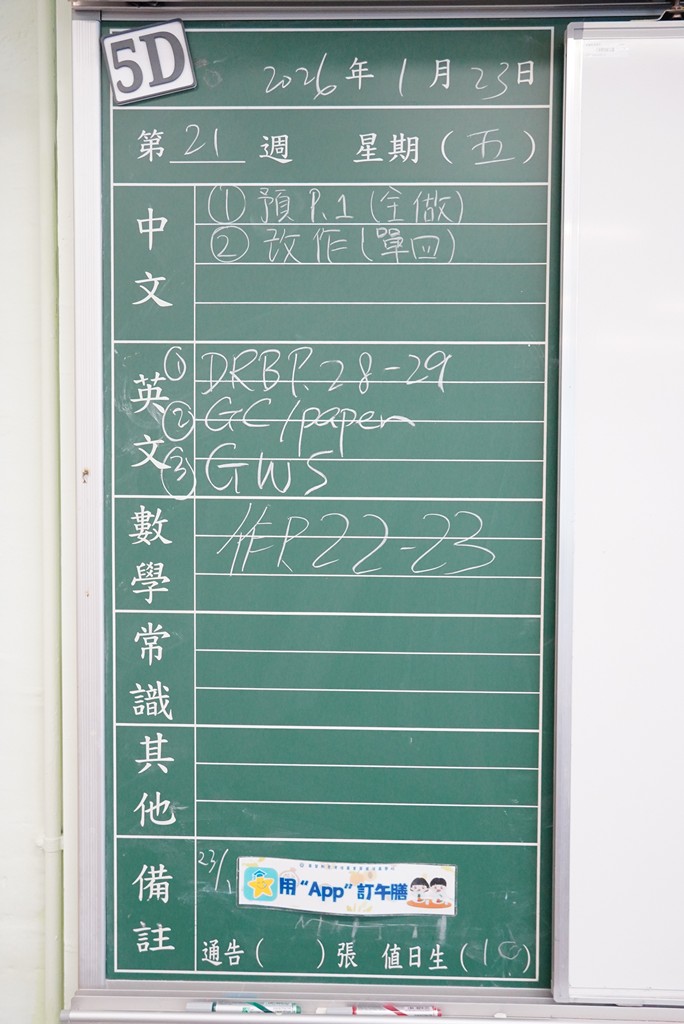 5D
2026年1月23日
第21週 星期(五)
中文
① 預 P.1 (全做)
② 改作(單四)
英文
① DRB P.28-29
② GC/paper
③ GWS
數學
作P.22-23
常識
其他
備註
23/1
用“App”訂午膳
通告( )張 值日生(10)